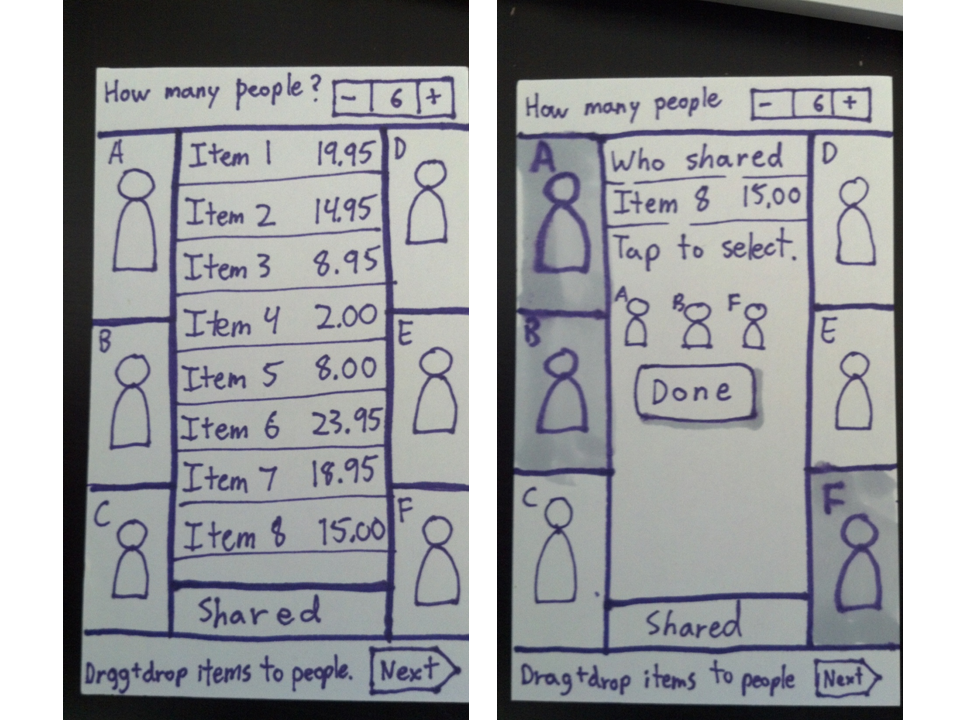 How many people? - 6 +
A
Item 1 19.95
D
Item 2 14.95
Item 3 8.95
Item 4 2.00
B
E
Item 5 8.00
Item 6 23.95
Item 7 18.95
C
F
Item 8 15.00
Shared
Drgg+drop items to people. Next
How many people - 6 +
A
Who shared
D
Item 8 15.00
Tap to select.
A B F
B
E
Done
C
F
Shared
Drag+drop items to people Next